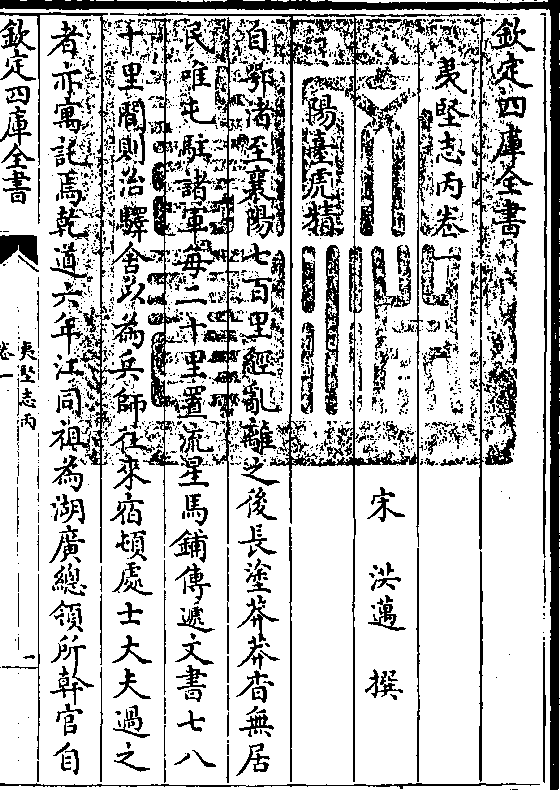 欽定四庫全書
夷堅志丙卷一
宋 洪邁 撰
陽臺虎精
自鄂渚至襄陽七百里經亂離之後長塗莽莽杳無居
民唯屯駐諸軍每二十里置流星馬鋪傳遞文書七八
十里間則治驛舍以為兵師往來宿頓處士大夫過之
者亦寓託焉乾道六年江同祖為湖廣總領所幹官自
欽定四庫全書
夷堅志丙
卷一
一